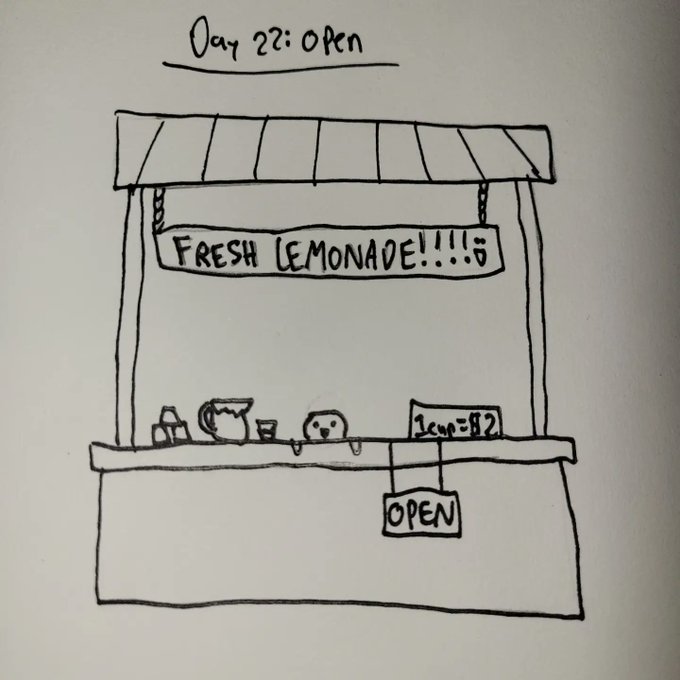 Day 22: Open
FRESH LEMONADE!!!!
1cup=$2
OPEN